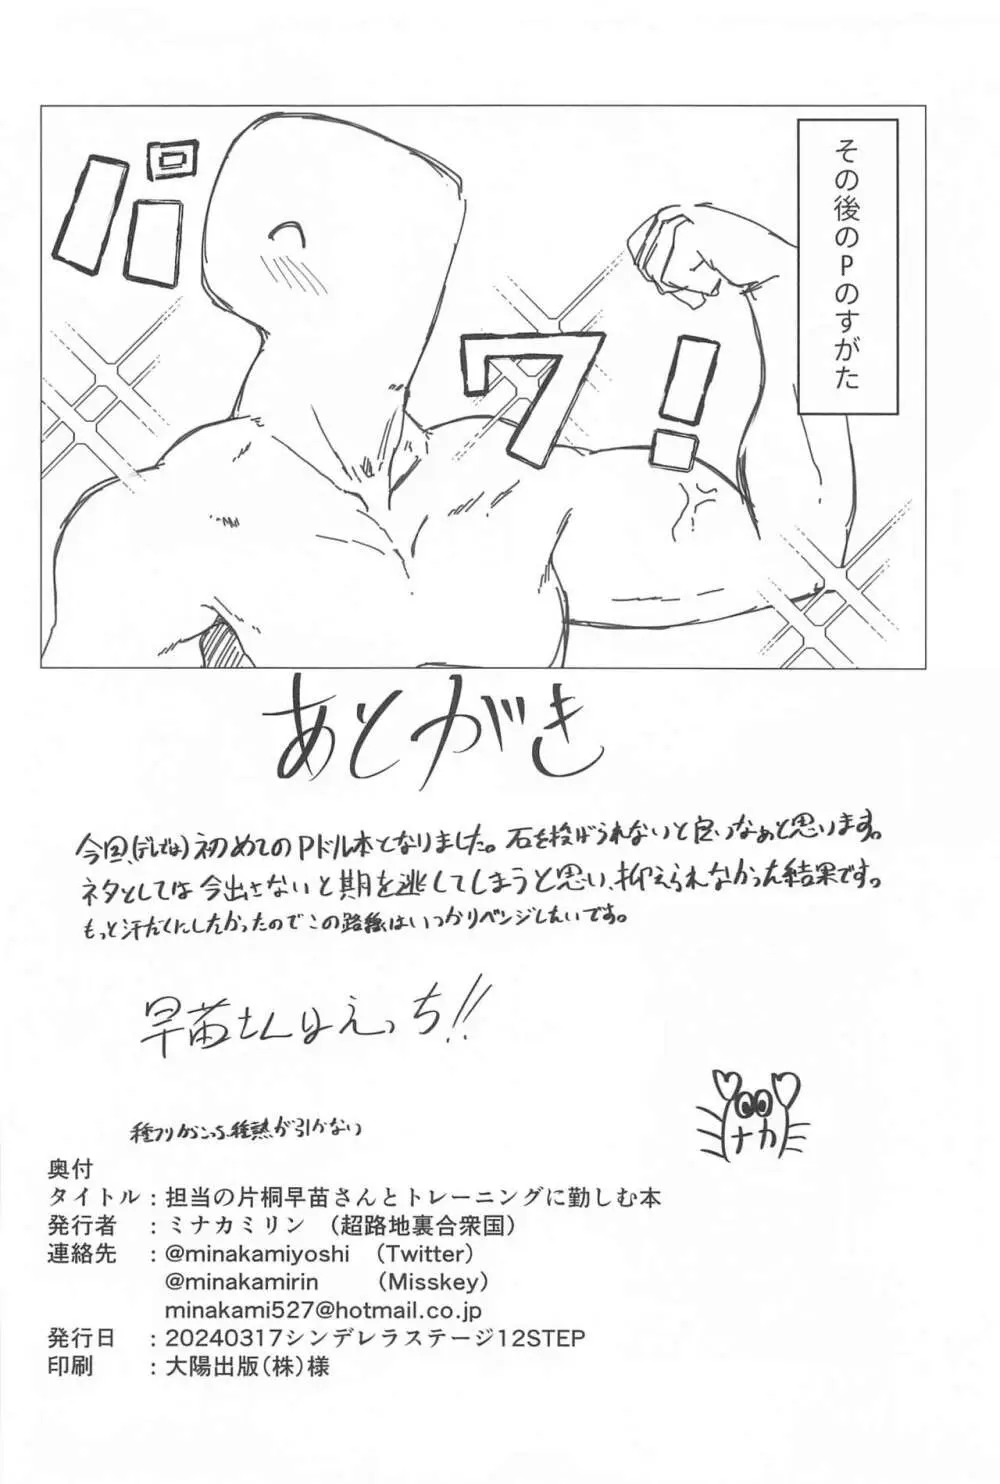 その後のPのすがた
パワー!
あとがき
今回、(デレでは)初めてのPドル本となりました。石を投げられないと良いなぁと思います。
ネタとしては今出さないと期を逃してしまうと思い、抑えられなかった結果です。
もっと汗だくにしたかったのでこの路線はいつかリベンジしたいです。
早苗さんはえっち!!
ナカ
奥付
タイトル:担当の片桐早苗さんとトレーニングに勤しむ本
発行者 :ミナカミリン (超路地裏合衆国)
連絡先 :@minakamiyoshi (Twitter)
@minakamirin (Misskey)
minakami527@hotmail.co.jp
発行日 :20240317シンデレラステージ12STEP
印刷 :大陽出版(株)様